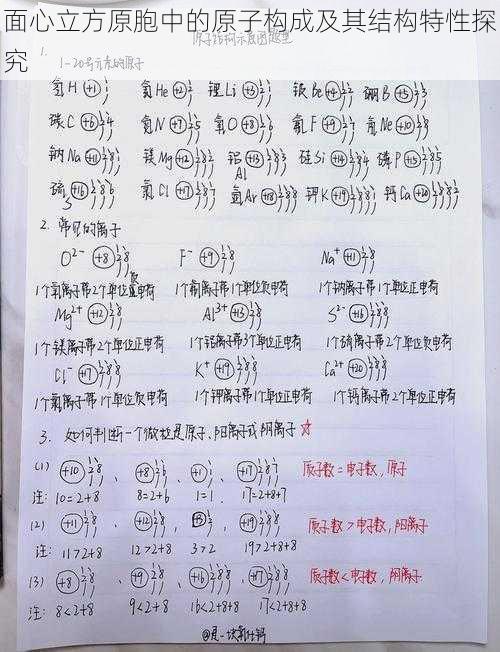 面心立方原胞中的原子构成及其结构特性探
究
原子结构示意图题型
1.
1-20号元素的原子
氢H +1 1 氦He +2 2 锂Li +3 2 1 铍Be +4 2 2 硼B +5 2 3
碳C +6 2 4 氮N +7 2 5 氧O +8 2 6 氟F +9 2 7 氖Ne +10 2 8
钠Na +11 2 8 1 镁Mg +12 2 8 2 铝 +13 2 8 3 硅Si +14 2 8 4 磷P +15 2 8 5
Al
硫 +16 2 8 6 氯Cl +17 2 8 7 氩Ar +18 2 8 8 钾K +19 2 8 8 1 钙Ca +20 2 8 8 2
S
2. 常见的离子
O²⁻ +8 2 8 F⁻ +9 2 8 Na⁺ +11 2 8
负
1个氧离子带2个单位正电荷 1个氟离子带1个单位负电荷 1个钠离子带1个单位正电荷
Mg²⁺ +12 2 8 Al³⁺ +13 2 8 S²⁻ +16 2 8 8
1个镁离子带2个单位正电荷 1个铝离子带3个单位正电荷 1个硫离子带2个单位负电荷
Cl⁻ +17 2 8 8 K⁺ +19 2 8 8 Ca²⁺ +20 2 8 8
1个氯离子带1个单位负电荷 1个钾离子带1个单位正电荷 1个钙离子带2个单位正电荷
3. 如何判断一个微粒是原子、阳离子或阴离子☆
(1) +10 2 8 、 +8 2 6 、 +1 1 、 +17 2 8 7 质子数=电子数,原子
注: 10=2+8 8=2+6 1=1 17=2+8+7
(2) +11 2 8 、 +12 2 8 、 +3 2 、 +19 2 8 8 质子数>电子数,阳离子
注: 11>2+8 12>2+8 3>2 19>2+8+8
(3) +8 2 8 、 +9 2 8 、 +16 2 8 8 、 +17 2 8 8 质子数<电子数,阴离子
注: 8<2+8 9<2+8 16<2+8+8 17<2+8+8